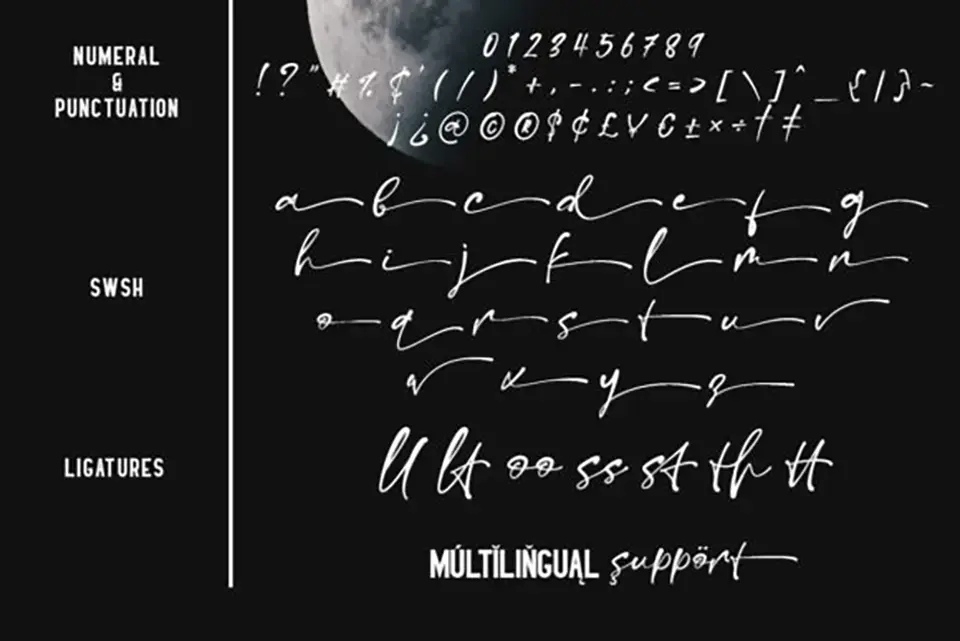 NUMERAL
&
PUNCTUATION
0 1 2 3 4 5 6 7 8 9
! ? " # % ¢ ' ( / ) * + , - . : ; < = > [ \ ] ^ _ { | } ~
¡ ¿ @ © ® $ ¢ £ ¥ € ± × ÷ † ‡
SWSH
a b c d e f g
h i j k l m n
o q r s t u v
w x y z
LIGATURES
ll lt oo ss st th tt
MÚLTĬLIŇGUĄL şuppört